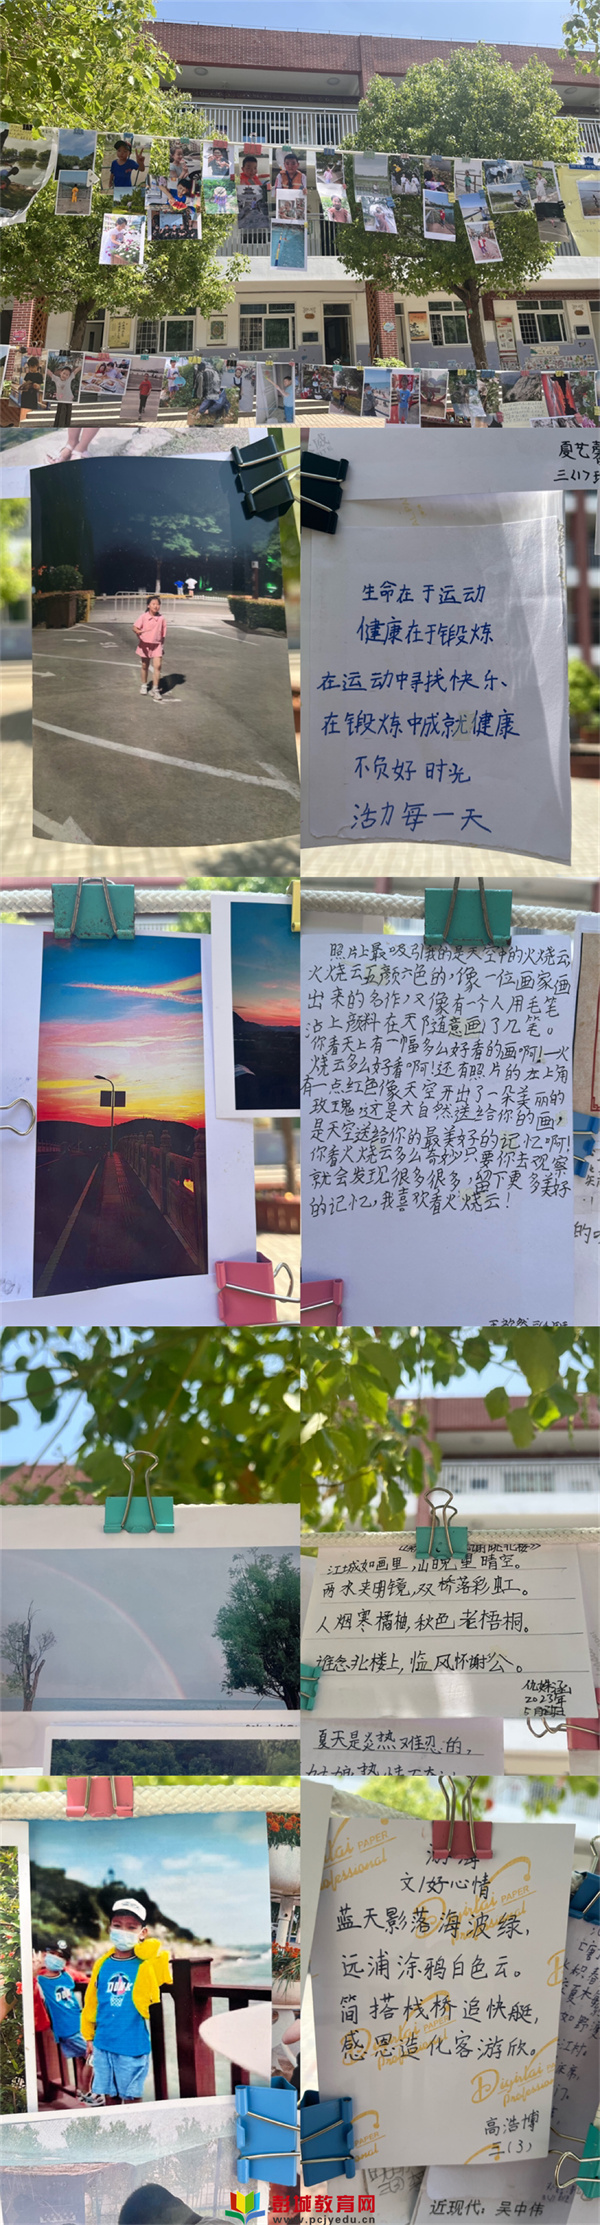 夏艺馨
三(1)班
生命在于运动
健康在于锻炼
在运动中寻找快乐、
在锻炼中成就健康
不负好时光
活力每一天
照片上最吸引我的是天空中的火烧云,
火烧云五颜六色的,像一位画家画
出来的名作,又像有一个人用毛笔
沾上颜料在天随意画了几笔。
你看天上有一幅多么好看的画啊!火
烧云多么好看啊!还有照片的左上角
有一点红色像天空开出了一朵美丽的
玫瑰,这是大自然送给你的画,
是天空送给你的最美好的记忆啊!
你看火烧云多么奇妙只要你去观察
就会发现很多很多,留下更多美好
的记忆,我喜欢看火烧云!
江城如画里,山晚望晴空。
两水夹明镜,双桥落彩虹。
人烟寒橘柚,秋色老梧桐。
谁念北楼上,临风怀谢公。
2023年
夏天是炎热难忍的,
游海
文/好心情
蓝天影落海波绿,
远浦涂鸦白色云。
简搭栈桥追快艇,
感恩造化客游欣。
高浩博
三(3)
近现代:吴中伟
彭城教育网
www.pcjyedu.cn